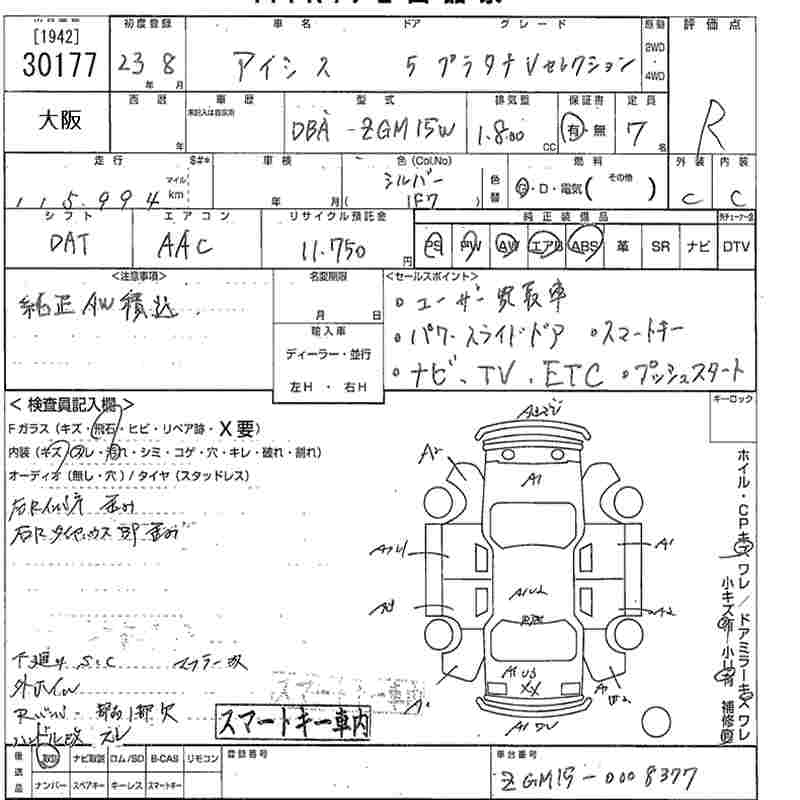 [1942]
30177
初度登録
車名
ドア
グレード
原動
評価点
23 8
年 月
アイシス
5
プラタナVセレクション
2WD
・
4WD
大阪
西暦
車歴
型式
排気量
保証書
定員
R
年
DBA-ZGM15W
1.800
CC
有・無
7
名
走行
S#*
車検
色(Col.No)
燃料
外装
内装
マイル
km
115,994
年 月
シルバー
( 1F7
色替
G・D・電気( その他 )
C
C
シフト
エアコン
リサイクル預託金
純正装備品
DAT
AAC
11,750
円
PS
PW
AW
エアB
ABS
革
SR
ナビ
DTV
<注意事項>
名変期限
<セールスポイント>
純正AW積込
月 日
輸入車
ディーラー・並行
左H・右H
。ユーザー買取車
。パワースライドドア 。スマートキー
。ナビ、TV、ETC 。プッシュスタート
< 検査員記入欄 >
キーロック
Fガラス(キズ・飛石・ヒビ・リペア跡・X要)
内装(キズ・スレ・汚れ・シミ・コゲ・穴・キレ・破れ・割れ)
オーディオ(無し・穴)/タイヤ(スタッドレス)
下廻り S.C
マフラー改
外ホイル
ハンドル改 スレ
スマートキー車内
A2
A1
A1
A2
A1U2
A1U3
XX
ホイル・CPキズ ワレ/ドアミラーキズ ワレ
小キズ有 小凹有 補修有
後送品
取説
ナビ取説
ロム/SD
B-CAS
リモコン
ナンバー
スペアキー
キーレス
スマートキー
登録番号
車台番号
ZGM15-0008377